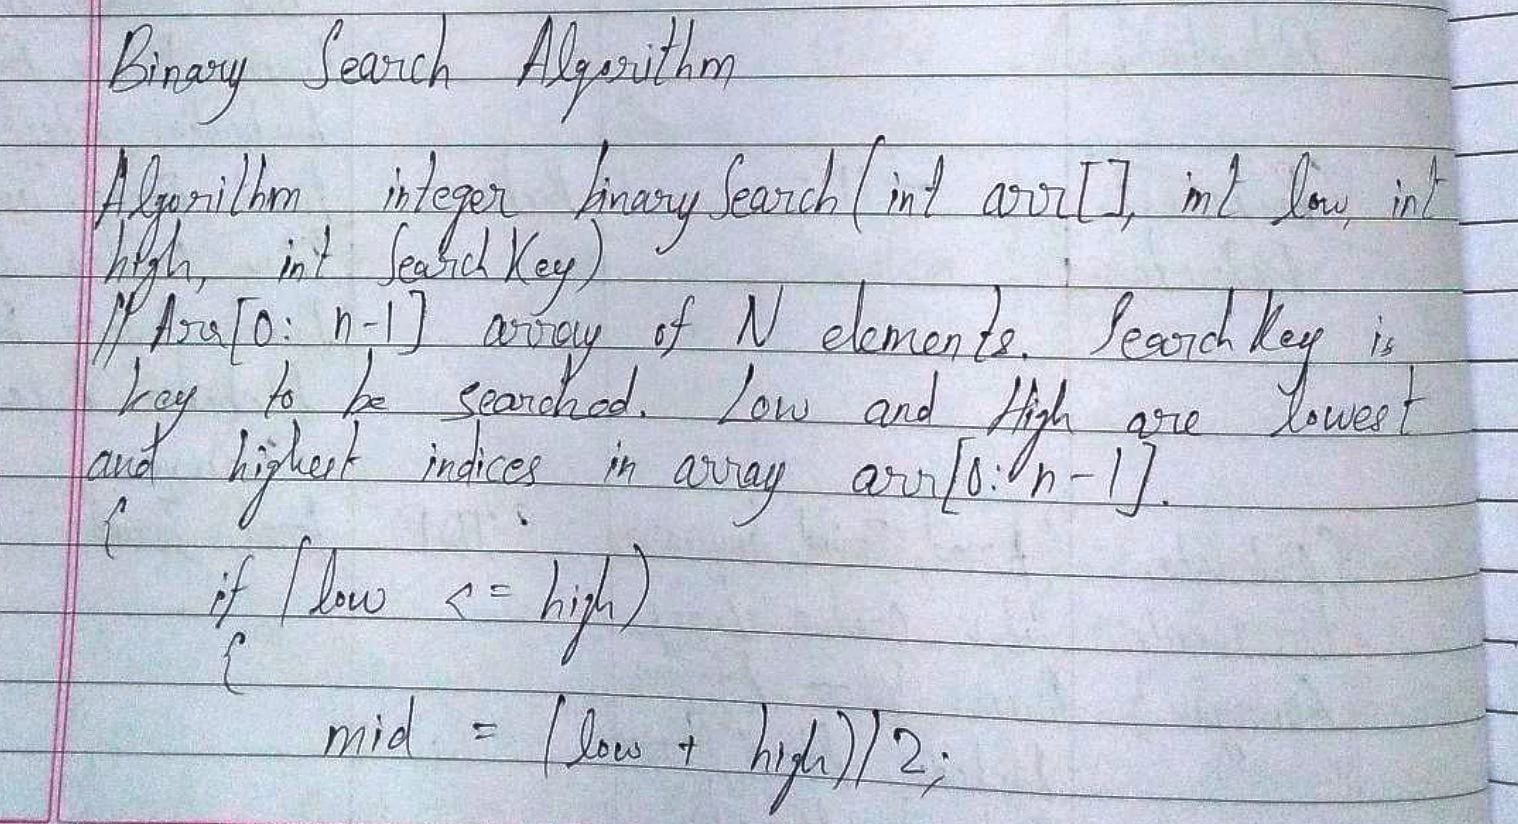 Binary Search Algorithm
Algorithm integer binarySearch(int arr[], int low, int
high, int SearchKey)
// Arr[0: n-1] array of N elements. SearchKey is
key to be searched. Low and High are lowest
and highest indices in array arr[0: n-1].
{
if (low <= high)
{
mid = (low + high)/2;